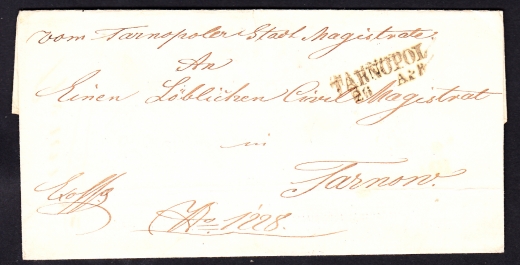 vom Tarnopoler Stadt Magistrate
An
TARNOPOL
20 APR
Einen Löblichen Civil Magistrat
in
Tarnow.
Exoffo
No 1228.